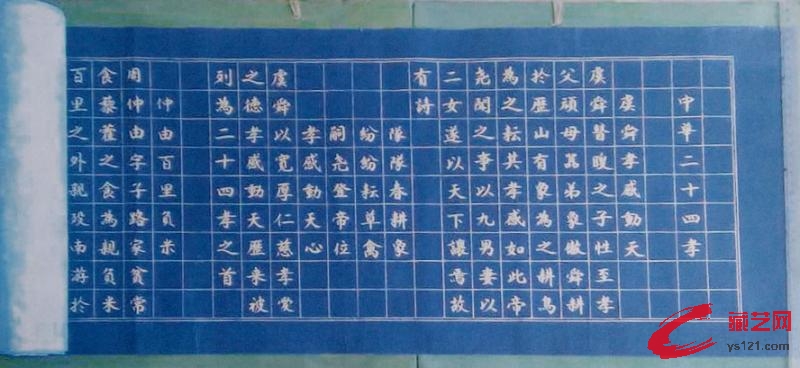 中華二十四孝
虞舜孝感動天
虞舜瞽瞍之子性至孝
父頑母嚚弟象傲舜耕
於歷山有象為之耕鳥
為之耘其孝感如此帝
堯聞之事以九男妻以
二女遂以天下讓焉故
有詩
隊隊春耕象
紛紛耘草禽
嗣堯登帝位
孝感動天心
虞舜以寬厚仁慈孝愛
之德孝感動天歷來被
列為二十四孝之首
仲由百里負米
周仲由字子路家貧常
食藜藿之食為親負米
百里之外親歿南游於
藏艺网
ys121.com